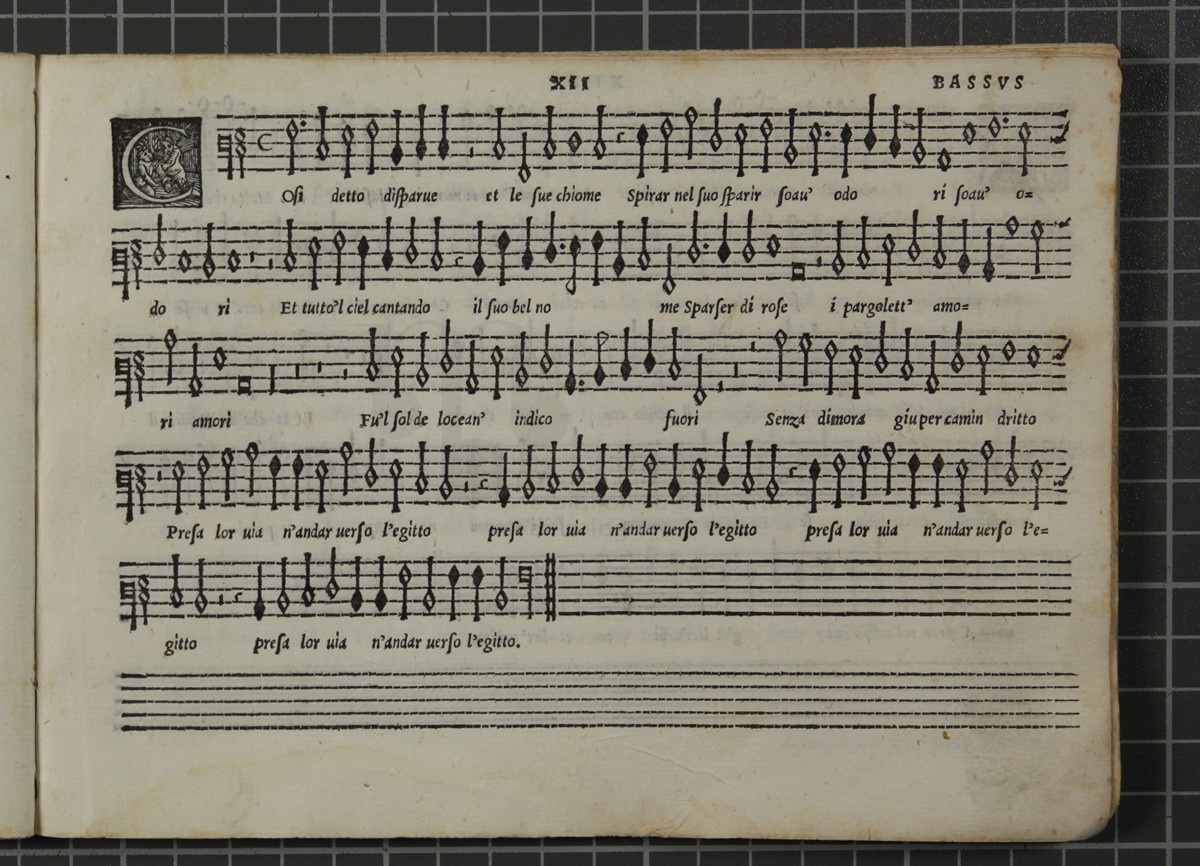 XII
BASSVS
COsi detto disparue et le sue chiome Spirar nel suo sparir soau' odo ri soau' o=
do ri Et tutto'l ciel cantando il suo bel no me Sparser di rose i pargolett' amo=
ri amori Fu'l sol de locean' indico fuori Senza dimora giu per camin dritto
Presa lor uia n'andar uerso l'egitto presa lor uia n'andar uerso l'egitto presa lor uia n'andar uerso l'e=
gitto presa lor uia n'andar uerso l'egitto.